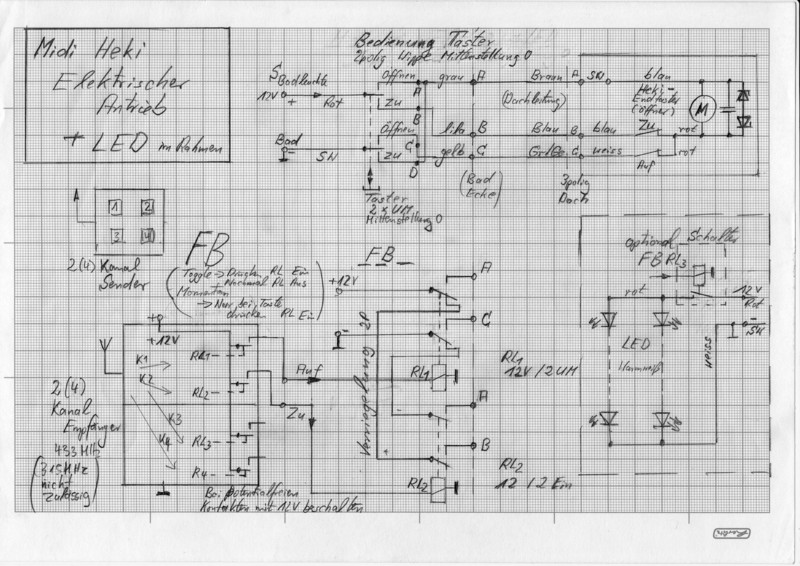 Midi Heki
Elektrischer
Antrieb
+ LED im Rahmen
Bedienung Taster
2polig Wippe Mittenstellung 0
S Badleuchte
12V + Rot
Bad
SW
Öffnen
Zu
Öffnen
Zu
A
B
C
D
grau A Braun A SW blau
(Dachleitung)
lila B Blau B blau Zu rot
gelb C Gr/Ge C weiss Auf rot
Heki-
Endtaster
(Öffner)
M
(Bad
Ecke)
3polig
Dach
Taster
2 x UM
Mittenstellung 0
A
1 2
3 4
2(4) Kanal
Sender
FB
(Toggle → Drücken RL Ein
Nochmal RL Aus
Momentan
→ Nur bei Taste
drücken RL Ein)
FB
+12V
-
2P
Verriegelung
A
C
RL1
RL1
12V/2UM
A
B
RL2
RL2
12/2 Ein
-
+
+
+12V
K1
K2
K3
K4
RL1
RL2
RL3
R4
Auf
Zu
2(4)
Kanal
Empfänger
433 MHz
(315MHz
nicht
zulässig)
Bei potentialfreien
Kontakten mit 12V beschalten
optional Schalter
FB RL3
rot
12V
Rot
-
SW
LED
weiss